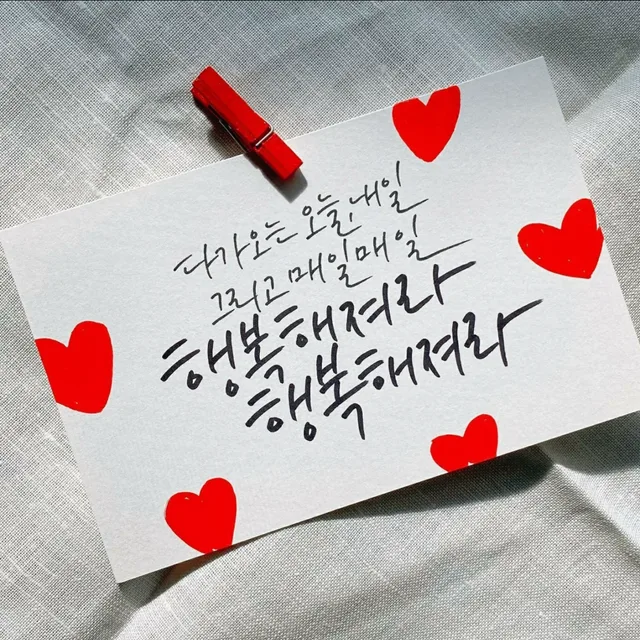 다가오는 오늘, 내일
그리고 매일매일
행복해져라
행복해져라